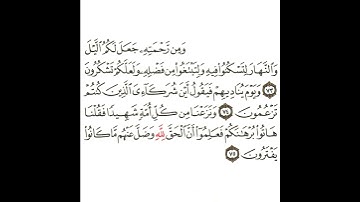 وَمِن رَّحْمَتِهِۦ جَعَلَ لَكُمُ ٱلَّيْلَ
وَٱلنَّهَارَ لِتَسْكُنُوا۟ فِيهِ وَلِتَبْتَغُوا۟ مِن فَضْلِهِۦ وَلَعَلَّكُمْ تَشْكُرُونَ
٧٣ وَيَوْمَ يُنَادِيهِمْ فَيَقُولُ أَيْنَ شُرَكَآءِىَ ٱلَّذِينَ كُنتُمْ
تَزْعُمُونَ ٧٤ وَنَزَعْنَا مِن كُلِّ أُمَّةٍ شَهِيدًا فَقُلْنَا
هَاتُوا۟ بُرْهَٰنَكُمْ فَعَلِمُوٓا۟ أَنَّ ٱلْحَقَّ لِلَّهِ وَضَلَّ عَنْهُم مَّا كَانُوا۟
يَفْتَرُونَ ٧٥